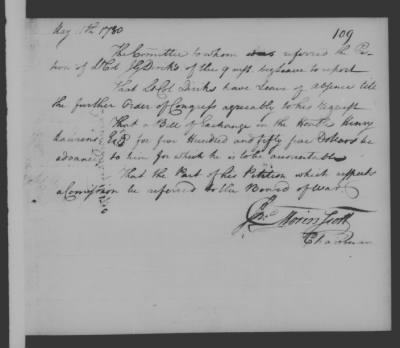 May 11th 1780
109
The Committee to whom was referred the Peti-
tion of Lt Col J G Dircks of the 9 inst. beg leave to report
That Lt Col Dircks have leave of absence till
the further Order of Congress agreeably to his request
That a Bill of Exchange on the Honble Henry
Laurens Esqr for five Hundred and fifty five Dollars be
advanced to him for which he is to be accountable
That the Part of his Petition which respects
a Comission be referred to the Board of War
Jno. Morin Scott
Chairman